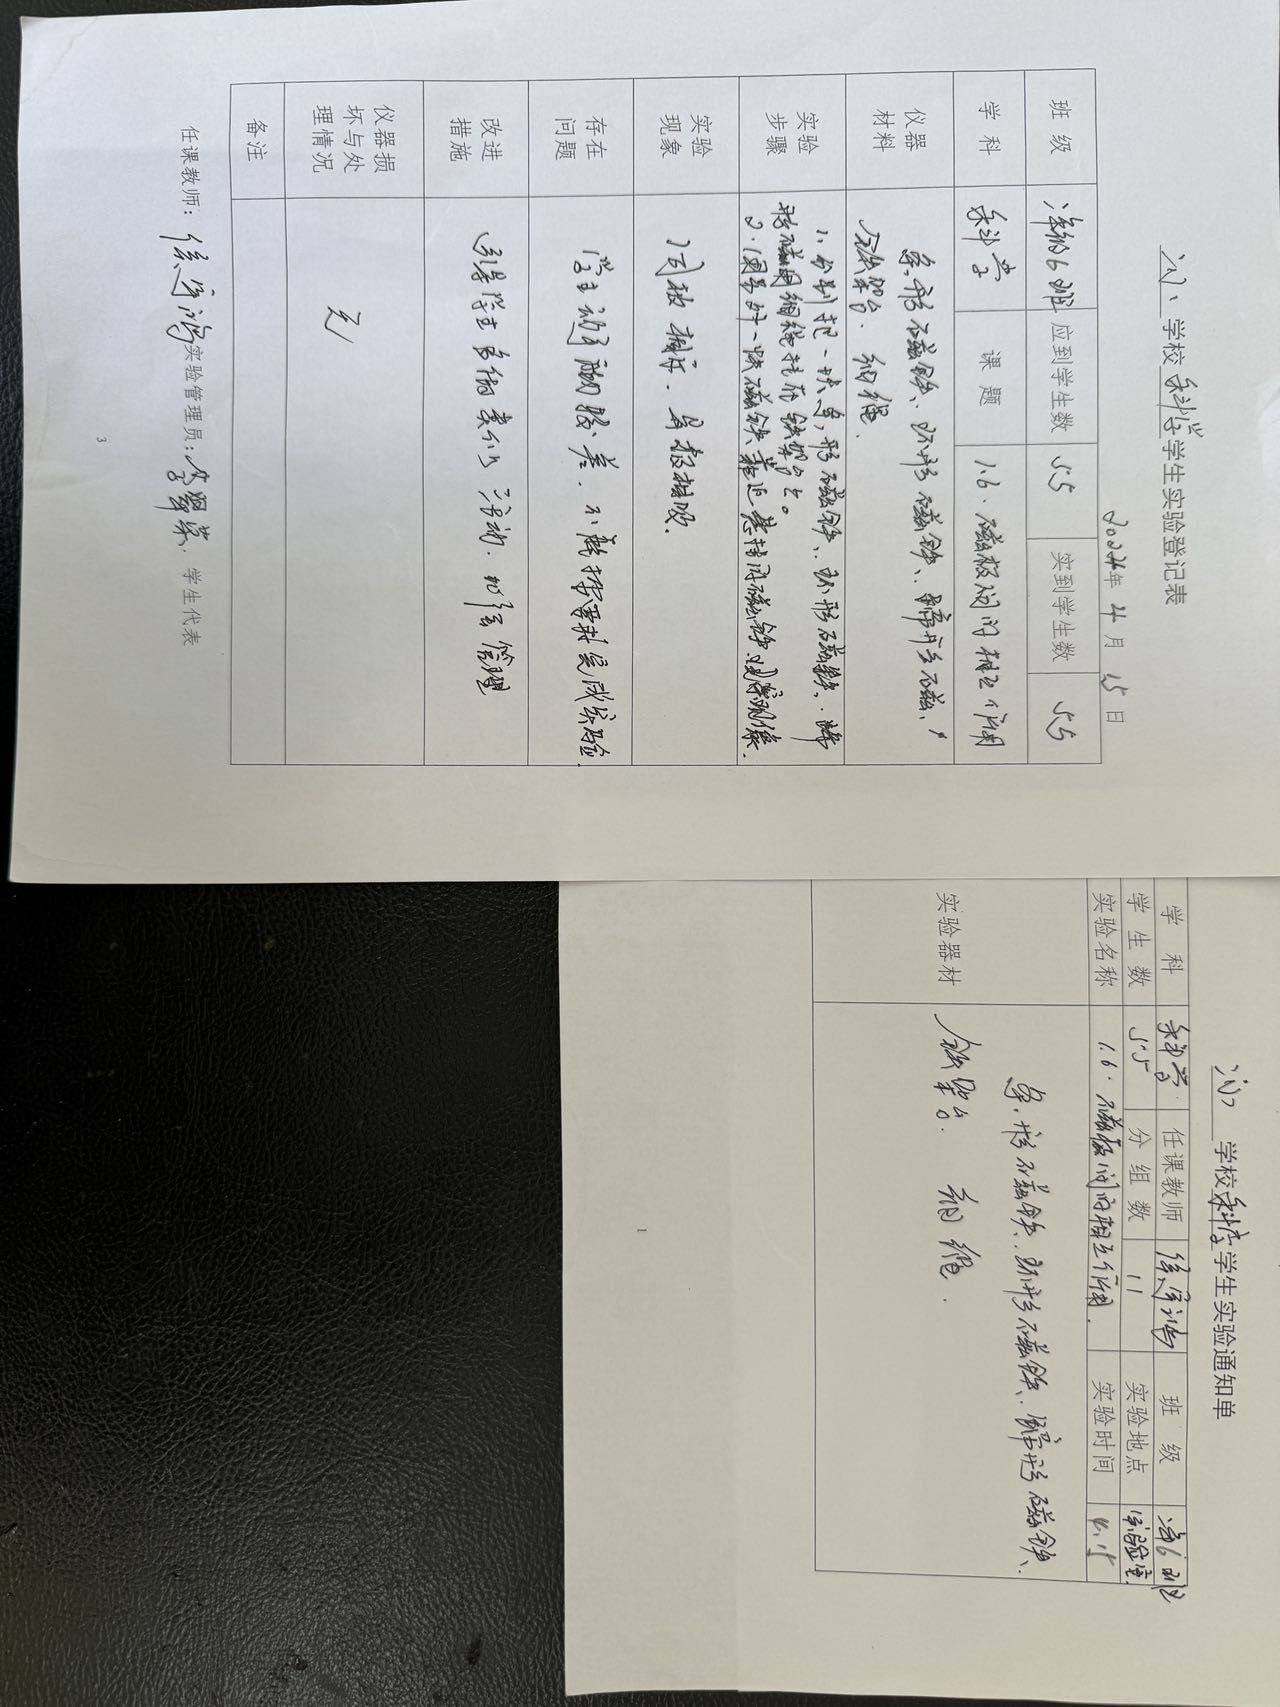 学校科学学生实验登记表
2024年4月15日
班级 6班 应到学生数 55 实到学生数 55
学科 科学 课题 1.6.磁极间的相互作用
仪器材料 条形磁铁、环形磁铁、蹄形磁
铁架台. 细绳.
实验步骤 1.分别把一块条形磁铁、环形磁铁、蹄
形磁用细绳挂在铁架台上。
2.用另外一块磁铁靠近悬挂的磁铁.观察现象.
实验现象 同极相斥、异极相吸.
存在问题 学生动手能力较差.不能按要求完成实验
改进措施 引导学生多做类似活动.加强管理
仪器损坏与处理情况 无
备注
任课教师： 实验管理员： 学生代表
3
学校科学学生实验通知单
学科 科学 任课教师 班级 6班
学生数 55 分组数 11 实验地点 实验室
实验名称 1.6.磁极间的相互作用. 实验时间 4.15
实验器材 条形磁铁、环形磁铁、蹄形磁铁、
铁架台. 细绳.
1